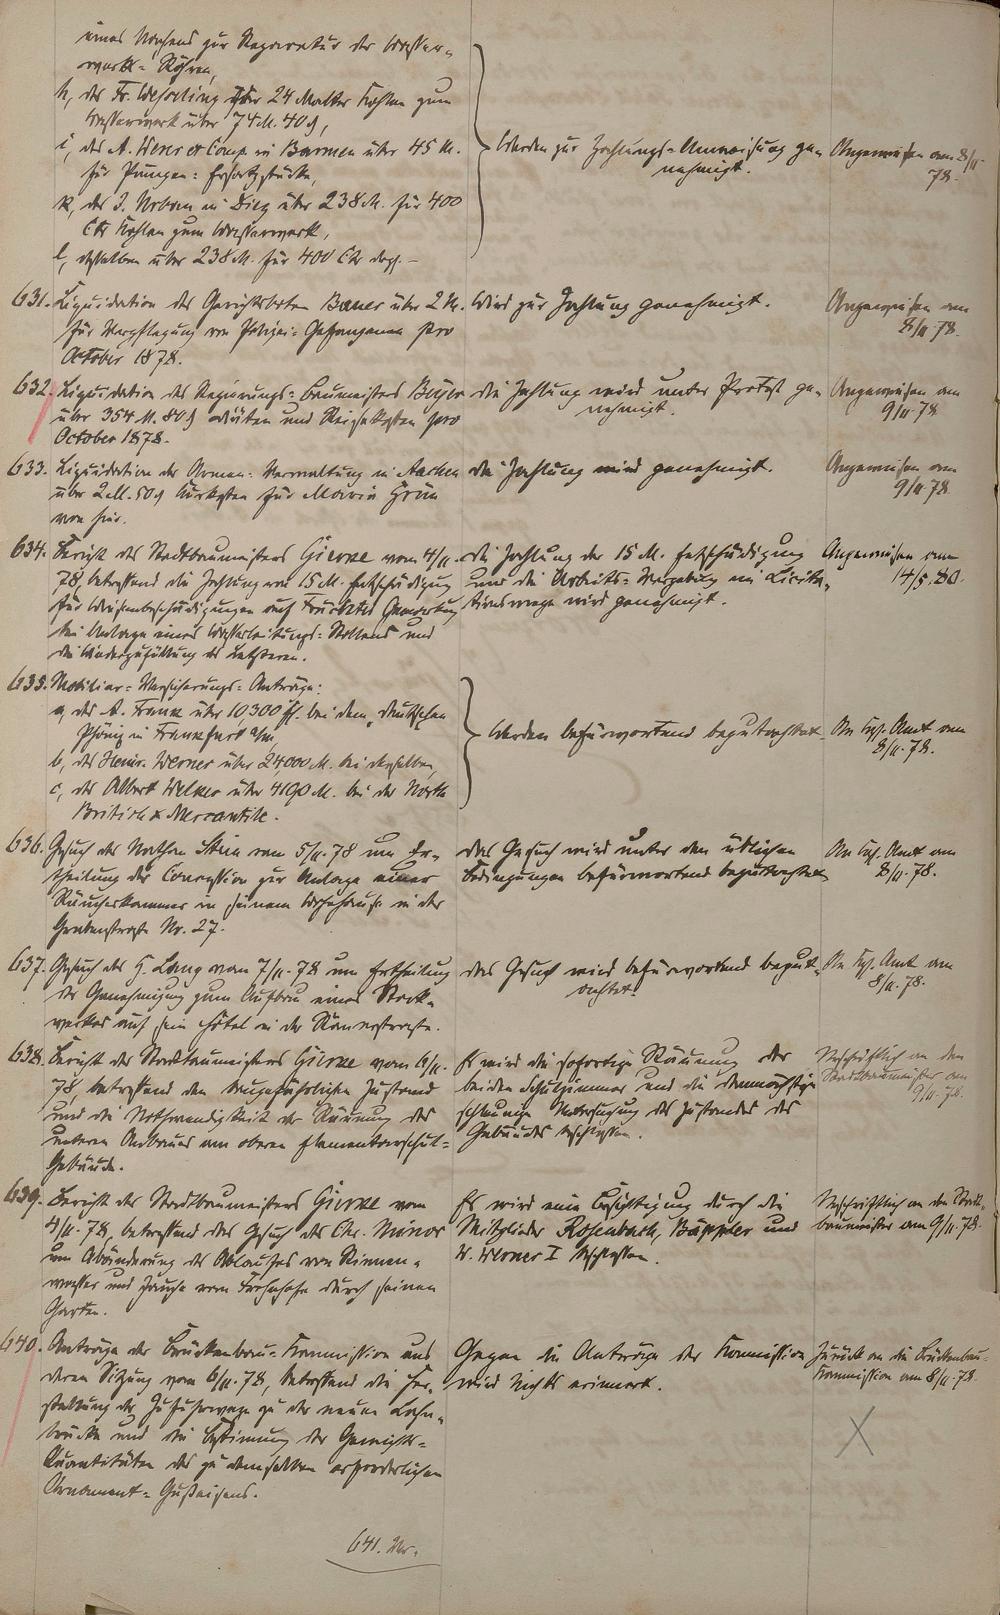 eines Nachens zur Reparatur der Wasser-
werk-Röhren,
h, des Fr. Wehrling über 24 Malter Kohlen zum
Wasserwerk über 74 M. 40 ₰,
i, des A. Wever et Comp. in Barmen über 45 M.
für Pumpen-Ersatzstücke,
k, des J. Urban in Diez über 238 M. für 400
Ctr Kohlen zum Wasserwerk,
l, desselben über 238 M. für 400 Ctr desgl. –
Werden zur Zahlungs-Anweisung ge-
nehmigt.
Angewiesen am 8/11
78.
631. Liquidation des Gerichtsboten Bauer über 2 M.
für Verpflegung von Polizei-Gefangenen pro
October 1878.
Wird zur Zahlung genehmigt.
Angewiesen am
8/11.78.
632. Liquidation des Regierungs-Baumeisters
über 354 M. 80 ₰ Diäten und Reisekosten pro
October 1878.
Die Zahlung wird unter Protest ge-
nehmigt.
Angewiesen am
9/11.78
633. Liquidation der Armen-Verwaltung in Aachen
über 2 M. 50 ₰ Kurkosten für Maria Grün
von hier.
Die Zahlung wird genehmigt.
Angewiesen am
9/11.78.
634. Bericht des Stadtbaumeisters Gierke vom 4/11.
78, betreffend die Zahlung von 15 M. Entschädigung
für Wiesenbeschädigungen auf Gemarkung
bei Anlage eines Wasserleitungs-Stollens und
die Wiederzufüllung des Letzteren.
Die Zahlung der 15 M. Entschädigung
und die Arbeits-Vergebung im Licita-
tionswege wird genehmigt.
Angewiesen am
14/5.80.
635. Mobiliar-Versicherungs-Anträge:
a, des A. Franz über 10,300 M. bei dem "Deutschen
Phönix in Frankfurt a/m,
b, des Heinr. Werner über 24,000 M. bei demselben,
c, des Albert Welker über 4190 M. bei der North
British & Mercantile.
Werden befürwortend begutachtet.
An Kgl. Amt am
8/11.78.
636. Gesuch des Nathan Stein vom 5/11.78 um Er-
theilung der Concession zur Anlage einer
Räucherkammer in seinem Wohnhause in der
Grabenstraße Nr. 27.
Das Gesuch wird unter den üblichen
Bedingungen befürwortend begutachtet.
An Kgl. Amt am
8/11.78.
637. Gesuch des H. Lang vom 7/11.78 um Ertheilung
der Genehmigung zum Aufbau eines Stock-
werkes auf sein Hôtel in der Römerstraße.
Das Gesuch wird befürwortend begut-
achtet.
An Kgl. Amt am
8/11.78.
638. Bericht des Stadtbaumeisters Gierke vom 6/11.
78, betreffend den baugefährlichen Zustand
und die Nothwendigkeit der Räumung des
unteren Anbaues am oberen Elementarschul-
Gebäude.
Es wird die sofortige Räumung der
beiden Schulzimmer und die demnächstige
schleunige Untersuchung des Zustandes des
Gebäudes beschlossen.
Urschriftlich an den
Stadtbaumeister am
9/11.78.
639. Bericht des Stadtbaumeisters Gierke vom
4/11.78, betreffend das Gesuch des Chr. Minor
um Abänderung des Ablaufes von Rinnen-
wasser und Jauche vom durch seinen
Garten.
Es wird eine Besichtigung durch die
Mitglieder Rosenbach, Büppler und
W. Werner I beschlossen.
Urschriftlich an den Stadt-
baumeister am 9/11.78.
640. Anträge der Brückenbau-Kommission aus
deren Sitzung vom 6/11.78, betreffend die Her-
stellung der Zufuhrwege zu der neuen Lahn-
brücke und die Bestimmung der Gewichts-
Quantitäten des zu demselben erforderlichen
Ornament-Gußeisens.
Gegen die Anträge der Kommission
wird Nichts erinnert.
Zurück an die Brückenbau-
Kommission am 8/11.78.
641. Nr.